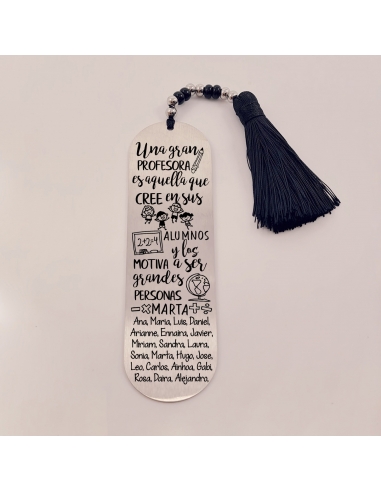 Una gran
PROFESORA
es aquella que
CREE en sus
2+2=4
ALUMNOS
y los
MOTIVA a ser
grandes
PERSONAS
−×MARTA+÷
Ana, Maria, Luis, Daniel,
Arianne, Ennaira, Javier,
Miriam, Sandra, Laura,
Sonia, Marta, Hugo, Jose,
Leo, Carlos, Ainhoa, Gabi,
Rosa, Daira, Alejandra,